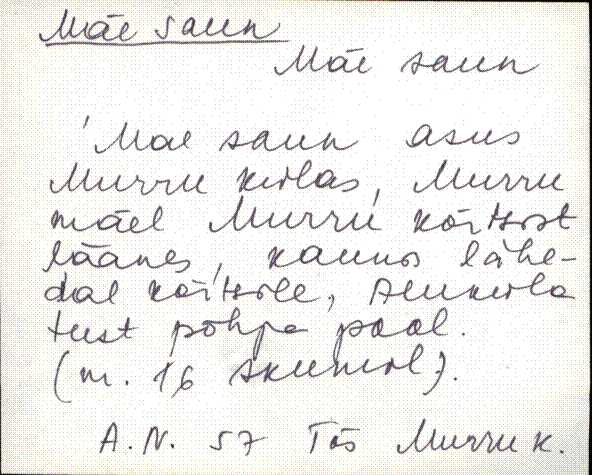 Mäe saun
Mäe saun
'Mäe saun asus
Murru külas, Murru
mäel Murru kõrtsist
läänes, kaunis lähe-
dal kõrtsile, Suuküla
teest põhja pool.
(m. 16 skumol).
A.N. 57 Tõs Murru k.